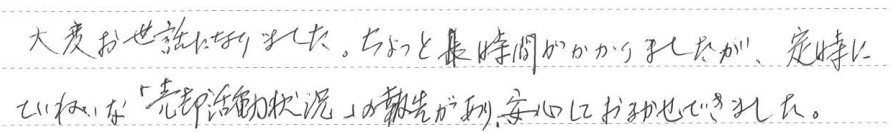 大変お世話になりました。ちょっと長時間がかかりましたが、定時に
ていねいな「売却活動状況」の報告があり、安心しておまかせできました。